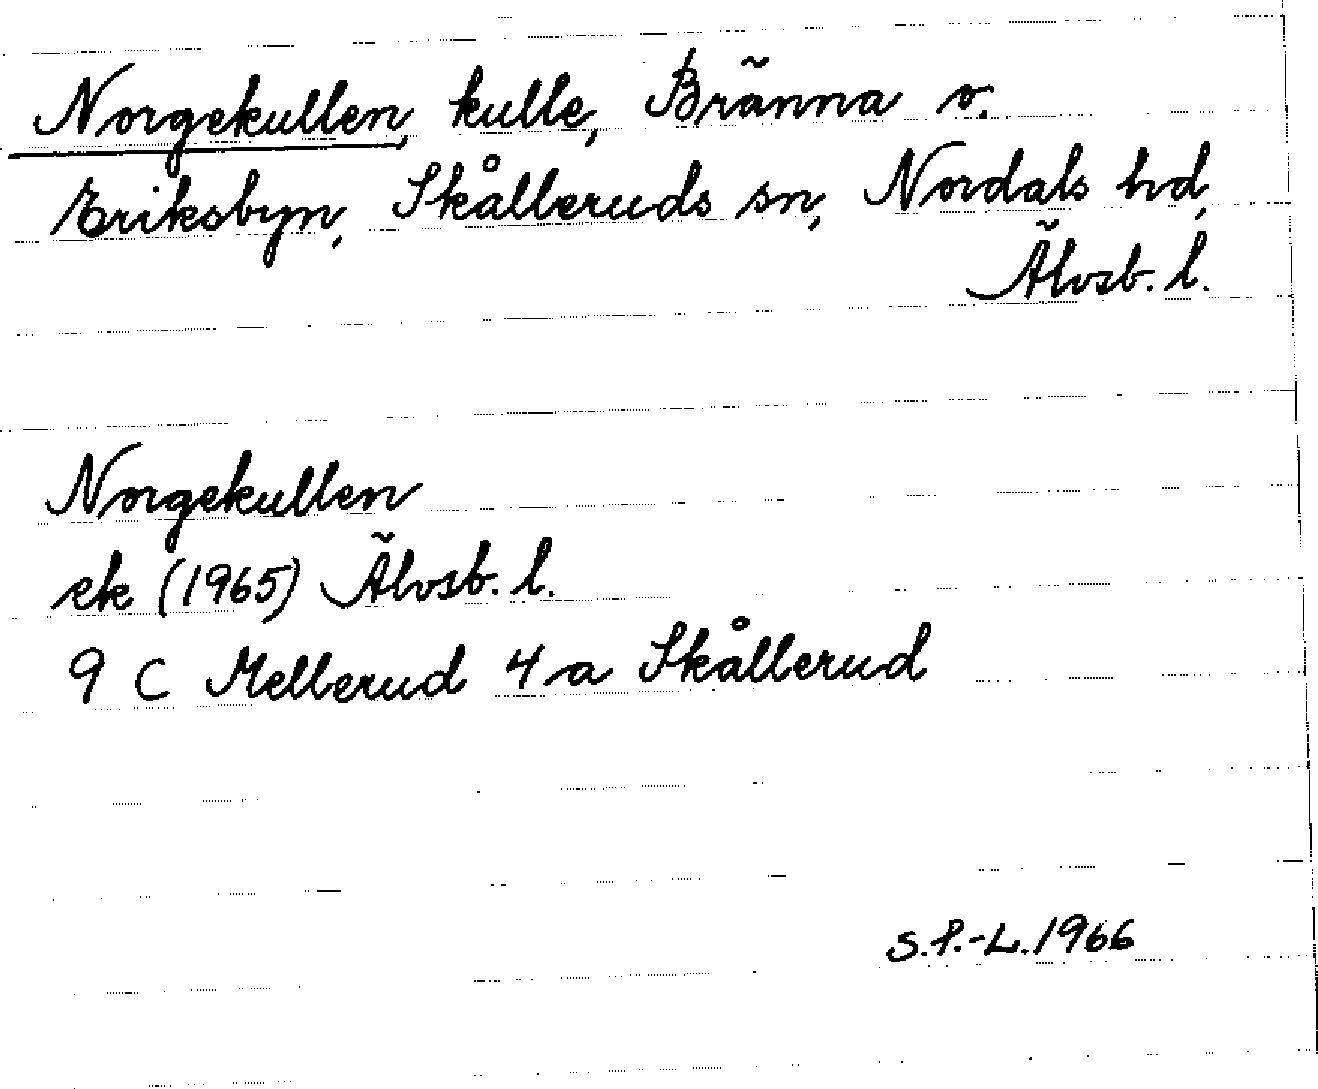 Norgekullen, kulle, Bränna o.
Eriksbyn, Skålleruds sn, Nordals hd,
Älvsb. l.
Norgekullen
ek (1965) Älvsb. l.
9 C Mellerud 4 a Skållerud
S.P.-L. 1966